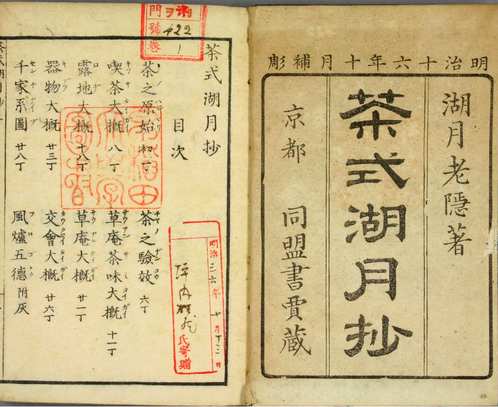 明治十六年十月補彫
湖月老隠著
茶式湖月抄
京都 同盟書賈蔵
茶式湖月抄
目次
茶之原始 初丁
茶之驗效 六丁
喫茶大概 八丁
草庵茶味大概 十一丁
露地大概 十八丁
草庵大概 廿一丁
器物大概 廿三丁
交會大概 廿六丁
千家系圖 廿八丁
風爐五德 附灰
門
號
卷
422
1
明治三六年
氏寄贈